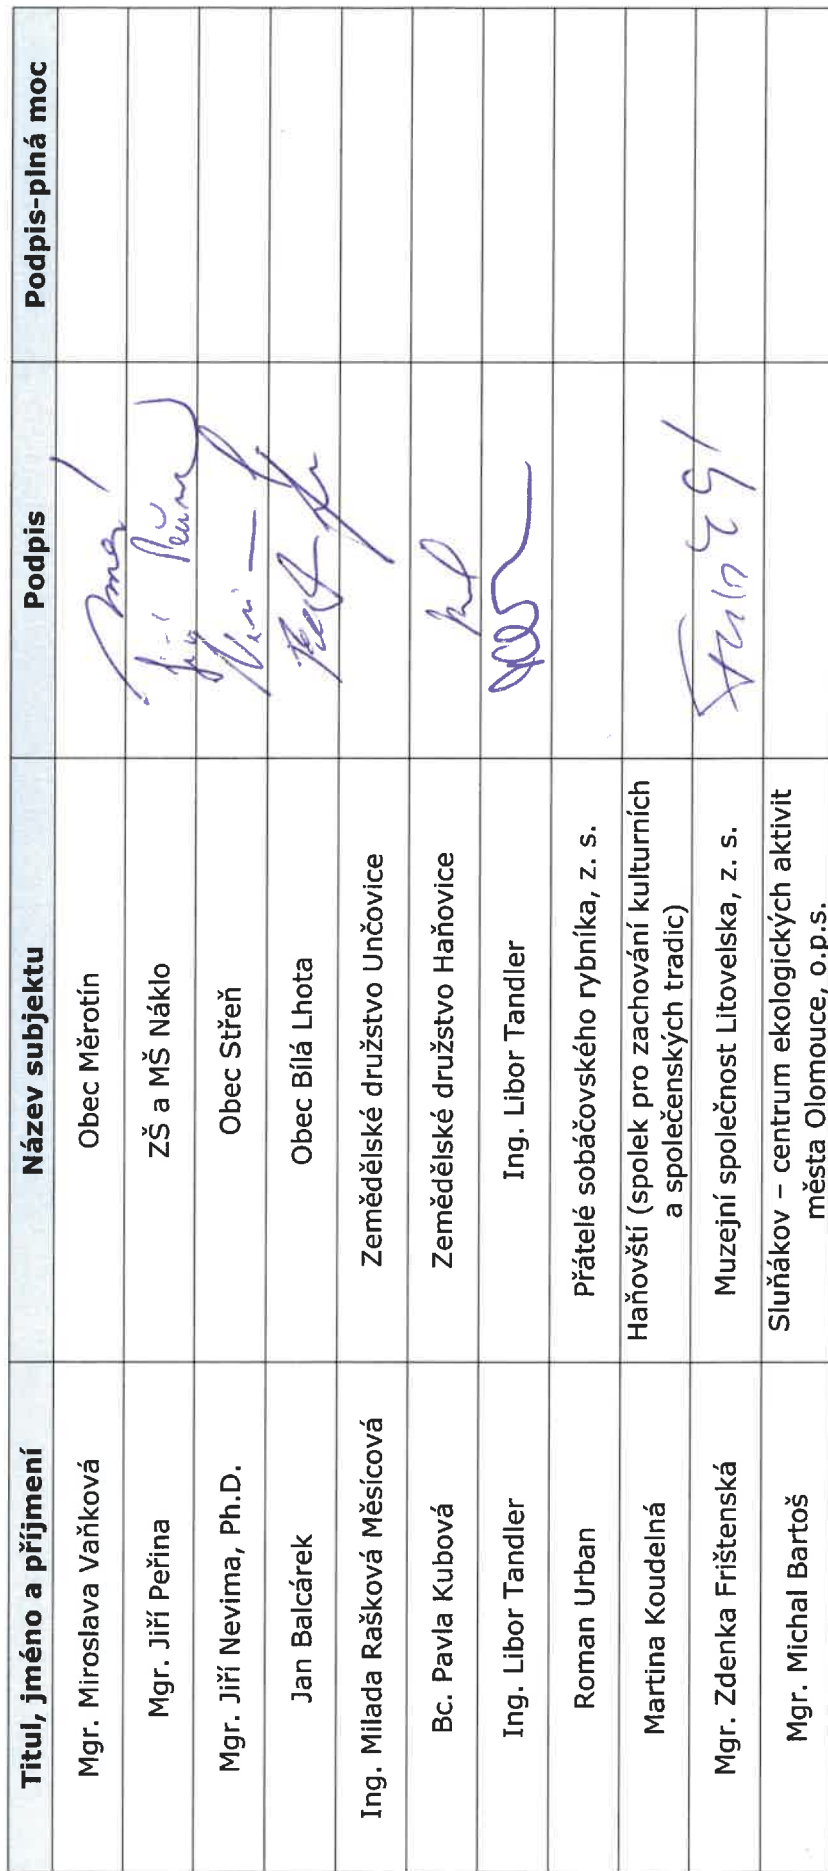 Titul, jméno a příjmení Název subjektu Podpis Podpis-plná moc
Mgr. Miroslava Vaňková Obec Měrotín
Mgr. Jiří Peřina ZŠ a MŠ Náklo
Mgr. Jiří Nevima, Ph.D. Obec Střeň
Jan Balcárek Obec Bílá Lhota
Ing. Milada Rašková Měsícová Zemědělské družstvo Unčovice
Bc. Pavla Kubová Zemědělské družstvo Haňovice
Ing. Libor Tandler Ing. Libor Tandler
Roman Urban Přátelé sobáčovského rybníka, z. s.
Martina Koudelná Haňovští (spolek pro zachování kulturních
a společenských tradic)
Mgr. Zdenka Frištenská Muzejní společnost Litovelska, z. s.
Mgr. Michal Bartoš Sluňákov – centrum ekologických aktivit
města Olomouce, o.p.s.